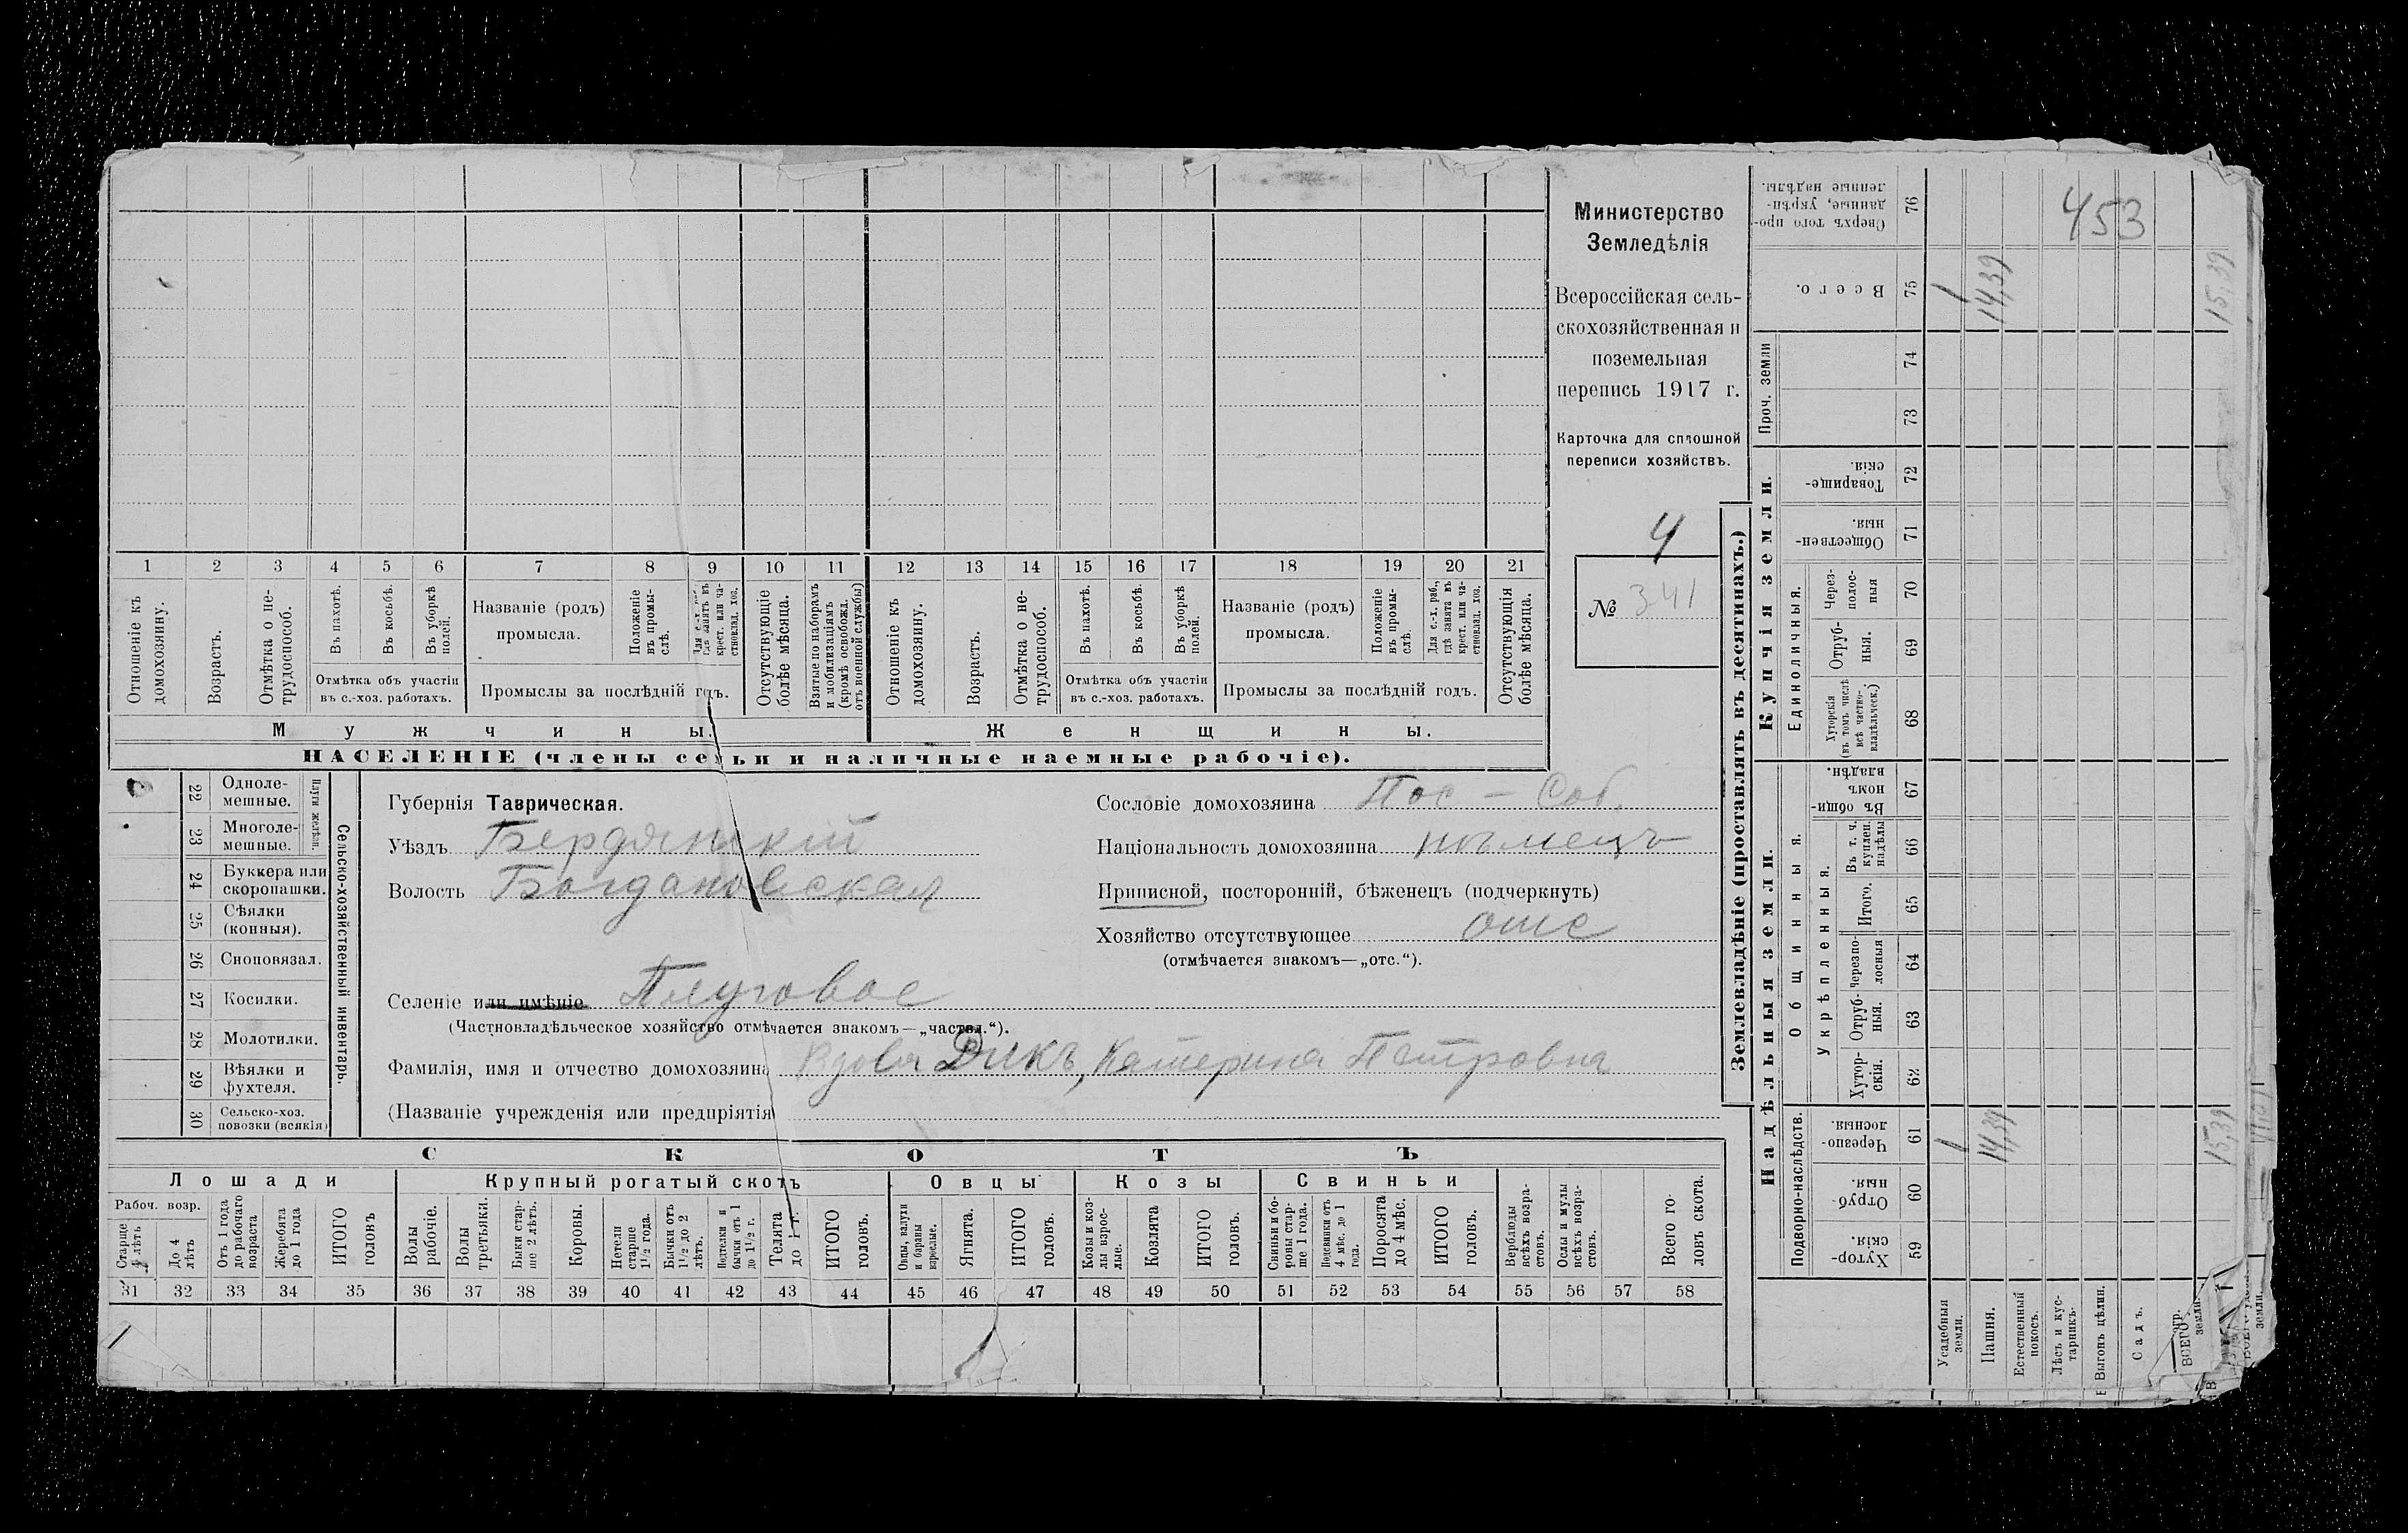 Министерство
Земледѣлія
Всероссійская сель-
скохозяйственная и
поземельная
перепись 1917 г.
Карточка для сплошной
переписи хозяйствъ.
4
№ 341
1 2 3 4 5 6 7 8 9 10 11 12 13 14 15 16 17 18 19 20 21
Отношеніе къ домохозяину.
Возрастъ.
Отмѣтка о не-трудоспособ.
Въ пахотѣ.
Въ косьбѣ.
Въ уборкѣ полей.
Отмѣтка объ участіи
въ с.-хоз. работахъ.
Названіе (родъ)
промысла.
Положеніе въ промы-слѣ.
Для с.-х. раб., гдѣ занятъ въ крест. или ча-стновлад. хоз.
Промыслы за послѣдній годъ.
Отсутствующіе болѣе мѣсяца.
Взятые по наборамъ и мобилизаціямъ (кромѣ освобожд. отъ военной службы)
Отношеніе къ домохозяину.
Возрастъ.
Отмѣтка о не-трудоспособ.
Въ пахотѣ.
Въ косьбѣ.
Въ уборкѣ полей.
Отмѣтка объ участіи
въ с.-хоз. работахъ.
Названіе (родъ)
промысла.
Положеніе въ промы-слѣ.
Для с.-х. раб., гдѣ занята въ крест. или ча-стновлад. хоз.
Промыслы за послѣдній годъ.
Отсутствующія болѣе мѣсяца.
Мужчины.
Женщины.
НАСЕЛЕНІЕ (члены семьи и наличные наемные рабочіе).
22 Одноле-мешные.
23 Многоле-мешные.
Плуги желѣзн.
24 Буккера или скоропашки.
25 Сѣялки (конныя).
26 Сноповязал.
27 Косилки.
28 Молотилки.
29 Вѣялки и фухтеля.
30 Сельско-хоз. повозки (всякія)
Сельско-хозяйственный инвентарь.
Губернія Таврическая.
Уѣздъ Бердянскій
Волость Богдановская
Селеніе или имѣніе Плуговое
(Частновладѣльческое хозяйство отмѣчается знакомъ—„частвл.“).
Фамилія, имя и отчество домохозяина Вдова Дикъ, Катерина Петровна
(Названіе учрежденія или предпріятія
Сословіе домохозяина Пос – Соб.
Національность домохозяина нѣмецъ
Приписной, посторонній, бѣженецъ (подчеркнуть)
Хозяйство отсутствующее отс
(отмѣчается знакомъ—„отс.“).
СКОТЪ
Лошади
Крупный рогатый скотъ
Овцы
Козы
Свиньи
Рабоч. возр.
Старше 4 лѣтъ
До 4 лѣтъ
Отъ 1 года до рабочаго возраста
Жеребята до 1 года
ИТОГО головъ
Волы рабочіе.
Волы третьяки.
Быки стар-ше 2 лѣтъ.
Коровы.
Нетели старше 1½ года.
Бычки отъ 1½ до 2 лѣтъ.
Подтелки и бычки отъ 1 до 1½ г.
Телята до 1 г.
ИТОГО головъ.
Овцы, валухи и бараны взрослые.
Ягнята.
ИТОГО головъ.
Козы и коз-лы взрос-лые.
Козлята
ИТОГО головъ.
Свиньи и бо-ровы стар-ше 1 года.
Подсвинки отъ 4 мѣс. до 1 года.
Поросята до 4 мѣс.
ИТОГО головъ.
Верблюды всѣхъ возра-стовъ.
Ослы и мулы всѣхъ возра-стовъ.
Всего го-ловъ скота.
31 32 33 34 35 36 37 38 39 40 41 42 43 44 45 46 47 48 49 50 51 52 53 54 55 56 57 58
Землевладѣніе (проставлять въ десятинахъ.)
Купчія земли.
Надѣльныя земли.
Проч. земли
Единоличныя.
Общинныя.
Укрѣпленныя.
Подворно-наслѣдств.
Сверхъ того про-данные, укрѣп-ленные надѣлы. 76
453
Всего. 75 1 14,39 15,39
74
73
Товарище-скія. 72
Обществен-ныя. 71
Через-полос-ныя 70
Отруб-ныя. 69
Хуторскія (въ томъ числѣ всѣ частно-владѣльческ.) 68
Въ общин-номъ владѣн. 67
Въ т. ч. куплен. надѣлы 66
Итого. 65
Черезпо-лосныя 64
Отруб-ныя. 63
Хутор-скія. 62
Черезпо-лосныя. 61 1 14,39 15,39
Отруб-ныя. 60
Хутор-скія. 59
Усадебныя земли.
Пашня.
Естественный покосъ.
Лѣсъ и кус-тарникъ.
Выгонъ цѣлин.
Садъ.
ВСЕГО
земли.